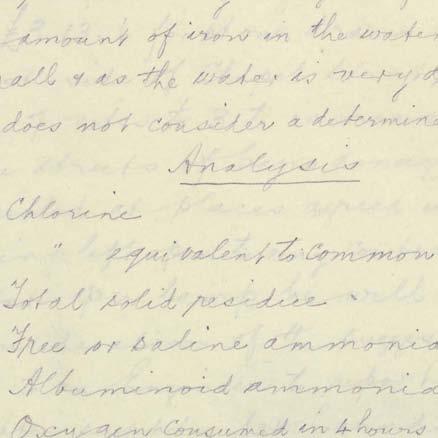 amount of iron in the water
all & as the water is very
does not consider a determine
Analysis
Chlorine
" equivalent to common
Total solid residue
Free or saline ammonia
Albuminoid ammonia
Oxygen consumed in 4 hours